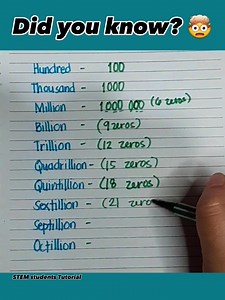 Did you know? 🤯
Hundred - 100
Thousand - 1000
Million - 1000 000 (6 zeros)
Billion - (9 zeros)
Trillion - (12 zeros)
Quadrillion - (15 zeros)
Quintillion - (18 zeros)
Sextillion - (21 zero
Septillion -
Octillion -
STEM students Tutorial